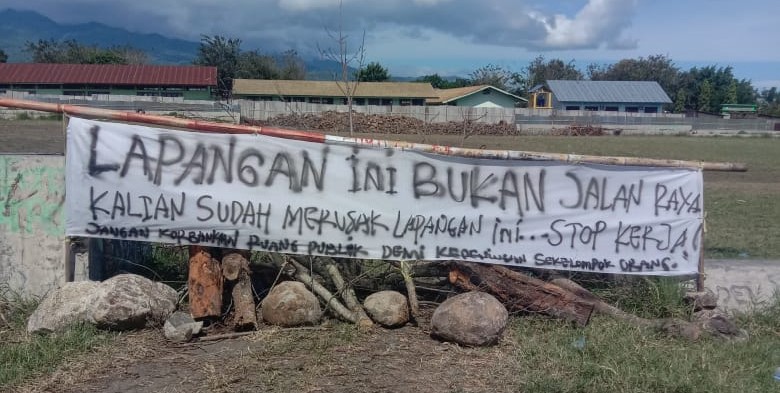 LAPANGAN ini BUKAN JALAN RAYA
KALIAN SUDAH MERUSAK LAPANGAN ini... STOP KERJA!
JANGAN KORBANKAN RUANG PUBLIK DEMI KEPENTINGAN SEKELOMPOK ORANG.